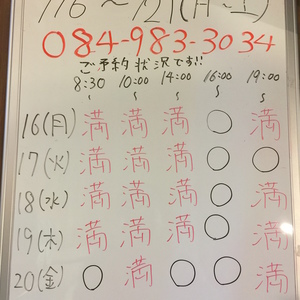 7/6〜7/21(月〜土)
084-983-3034
ご予約状況です!!
8:30 10:00 14:00 16:00 19:00
〜 〜 〜 〜 〜
16(月) 満 満 満 ○ 満
17(火) 満 満 満 ○ ○
18(水) 満 満 満 ○ 満
19(木) 満 満 満 ○ 満
20(金) ○ 満 ○ ○ 満